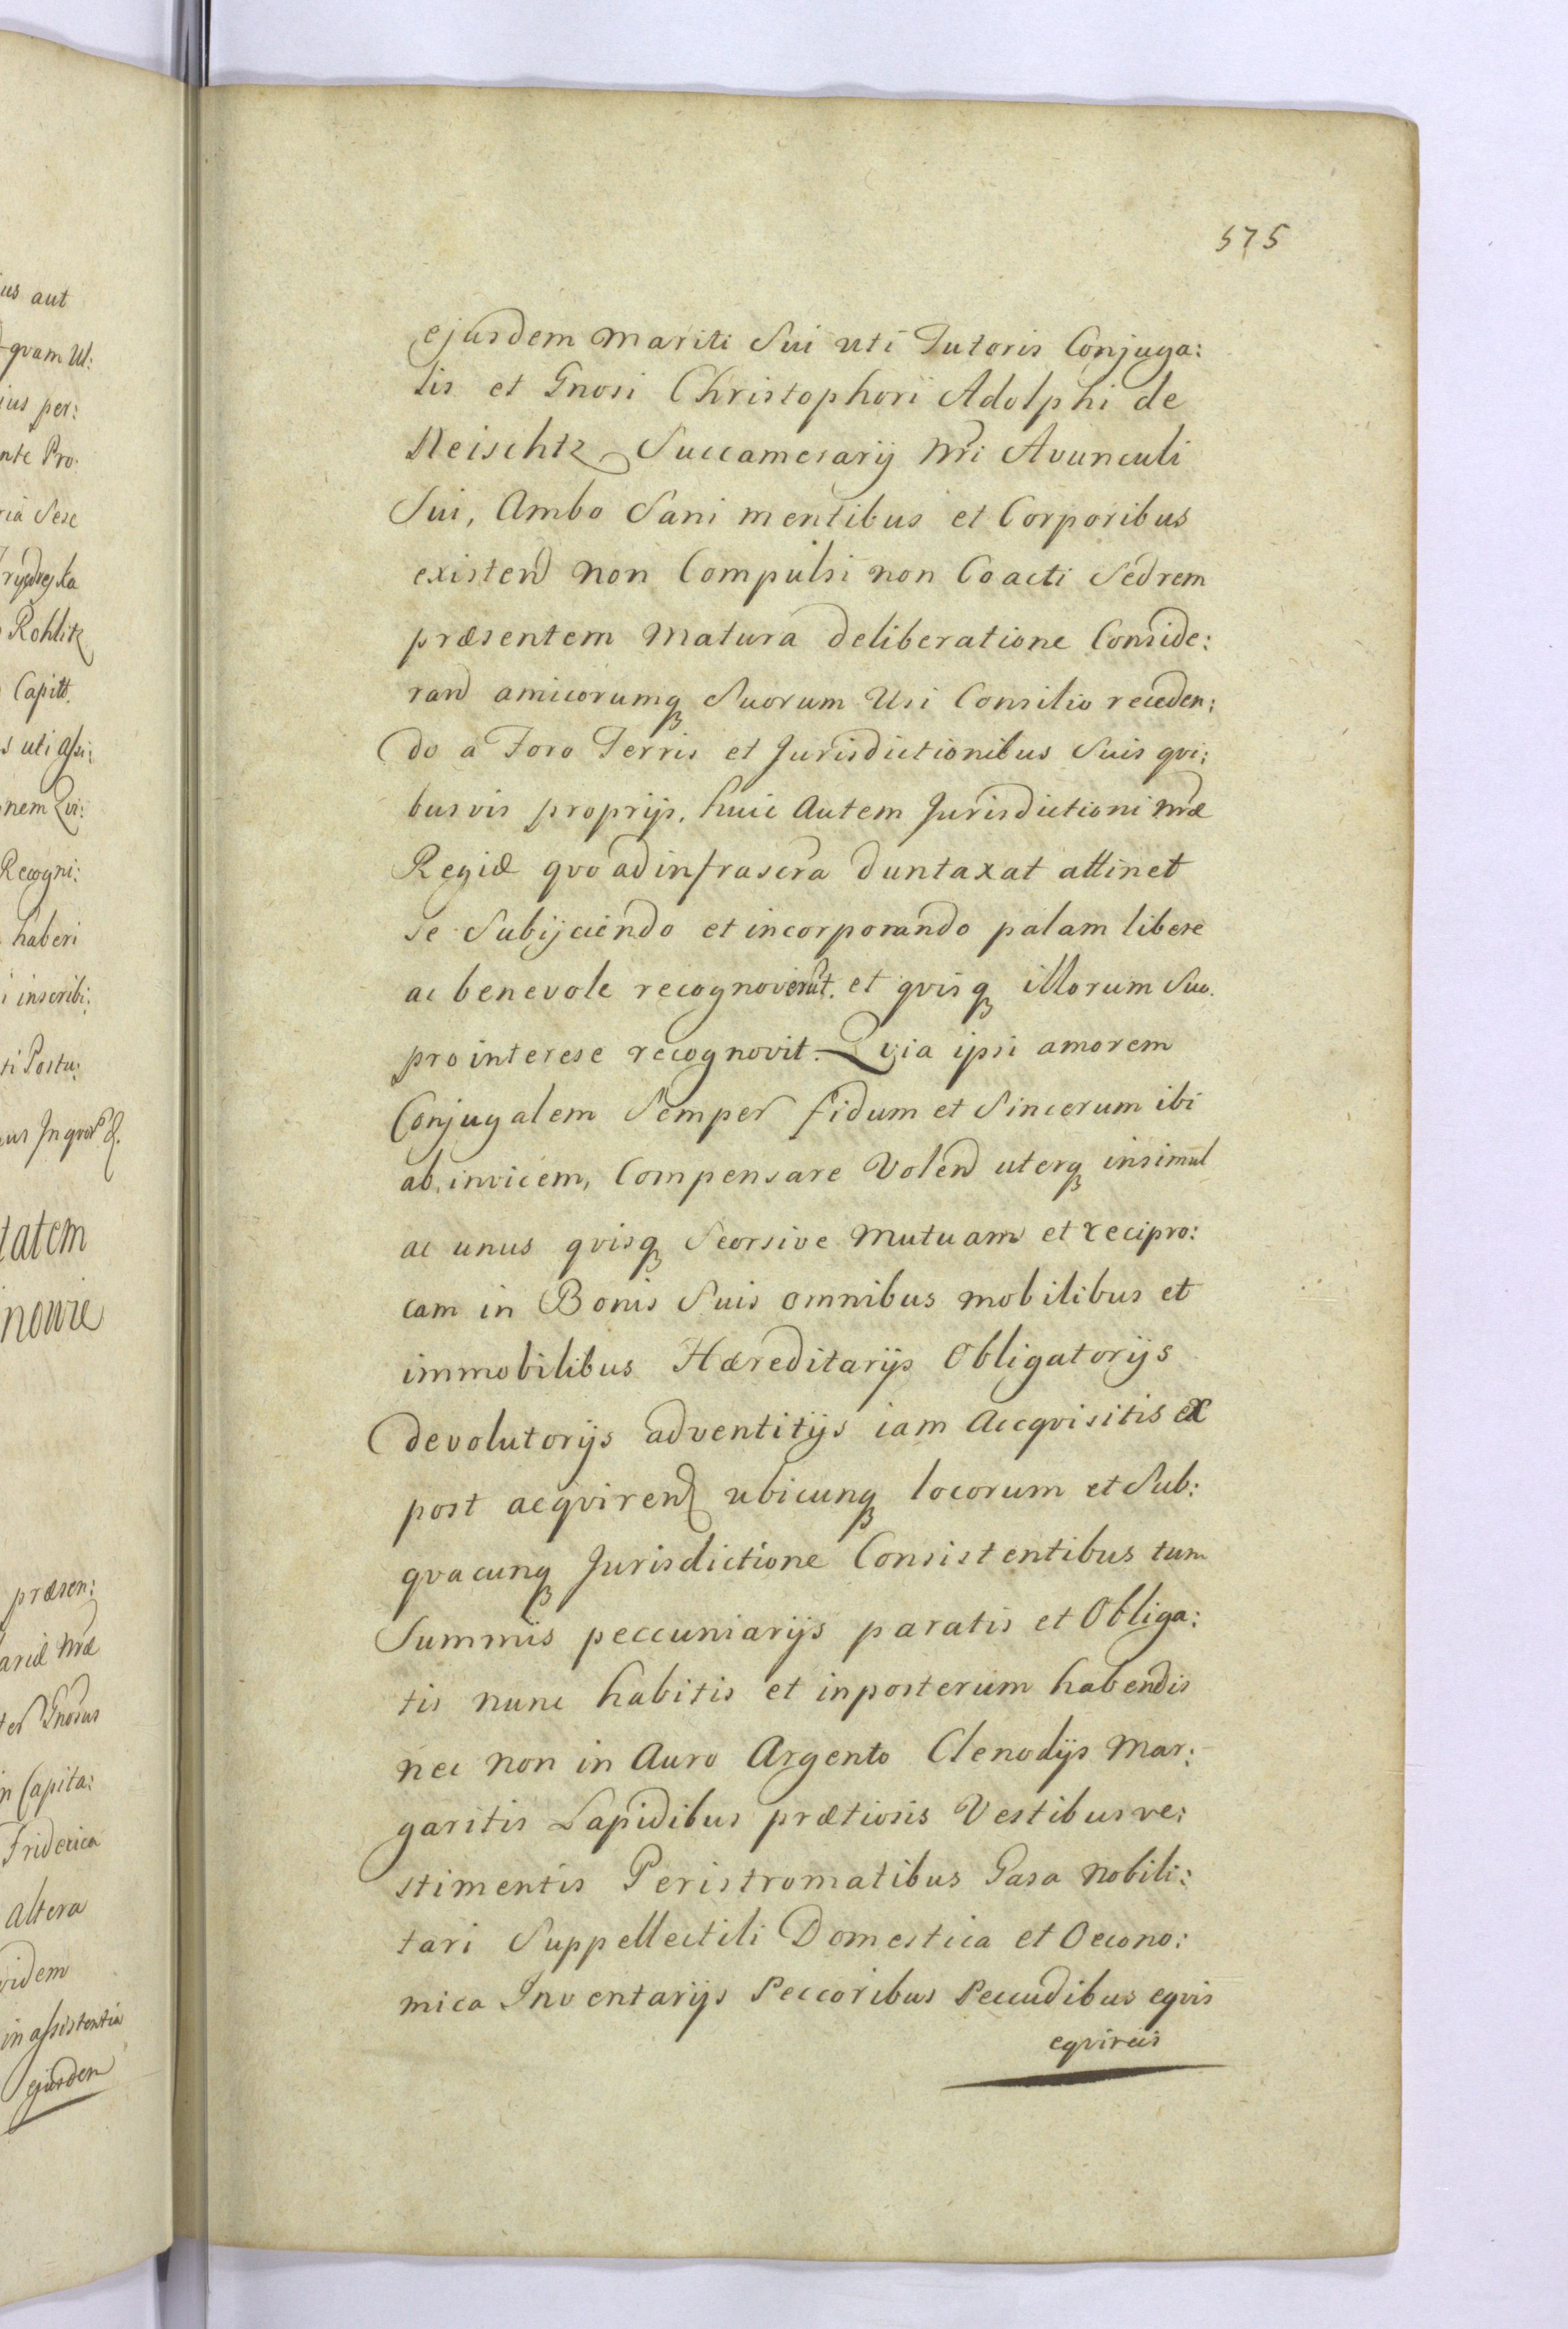 575
ejusdem mariti Sui uti Tutoris Conjuga:
lis et Gnosi Christophori Adolphi de
Succamerarij Nri Avunculi
Sui, Ambo Sani mentibus et Corporibus
existend non Compulsi non Coacti Sed rem
præsentem Matura deliberatione Conside:
rand amicorumq Suorum Usi Consilio receden:
do a Foro Terris et Jurisdictionibus Suis qvi:
busvis proprijs, huic Autem Jurisdictioni Nræ
Regiæ qvo ad infrascra duntaxat attinet
se Subijciendo et incorporando palam libere
ac benevole recognoverut. et qvisq illorum Suo.
pro interese recognovit. Qvia ipsi amorem
Conjugalem Semper fidum et Sincerum ibi
ab invicem, Compensare Volend uterq insimul
ac unus qvisq Seorsive Mutuam et recipro:
cam in Bonis Suis omnibus mobilibus et
immobilibus Hæreditarijs Obligatorijs
devolutorijs adventitijs iam Accqvisitis et
post acqvirend ubicunq locorum et Sub:
qvacunq Jurisdictione Consistentibus tum
Summis peccuniarijs paratis et Obliga:
tis nunc habitis et inposterum habendis
nec non in Auro Argento Clenodijs Mar:
garitis Lapidibus prætiosis Vestibus ve:
stimentis Peristromatibus Gasa Nobili:
tari Suppellectili Domestica et Oecono:
mica Inventarijs Peccoribus Pecudibus eqvis
eqvireis
us aut
qvam Ul:
ius per:
nte Pro:
ria Sese
Rohlitz
Capitt.
s uti Assi:
nem Qvi:
Recogni:
haberi
i inscribi:
ti Postu:
tatem
nowie
præsen:
ariæ Nræ
Gnosus
in Capita:
Friderica
altera
videm
in assistentia
ejusdem